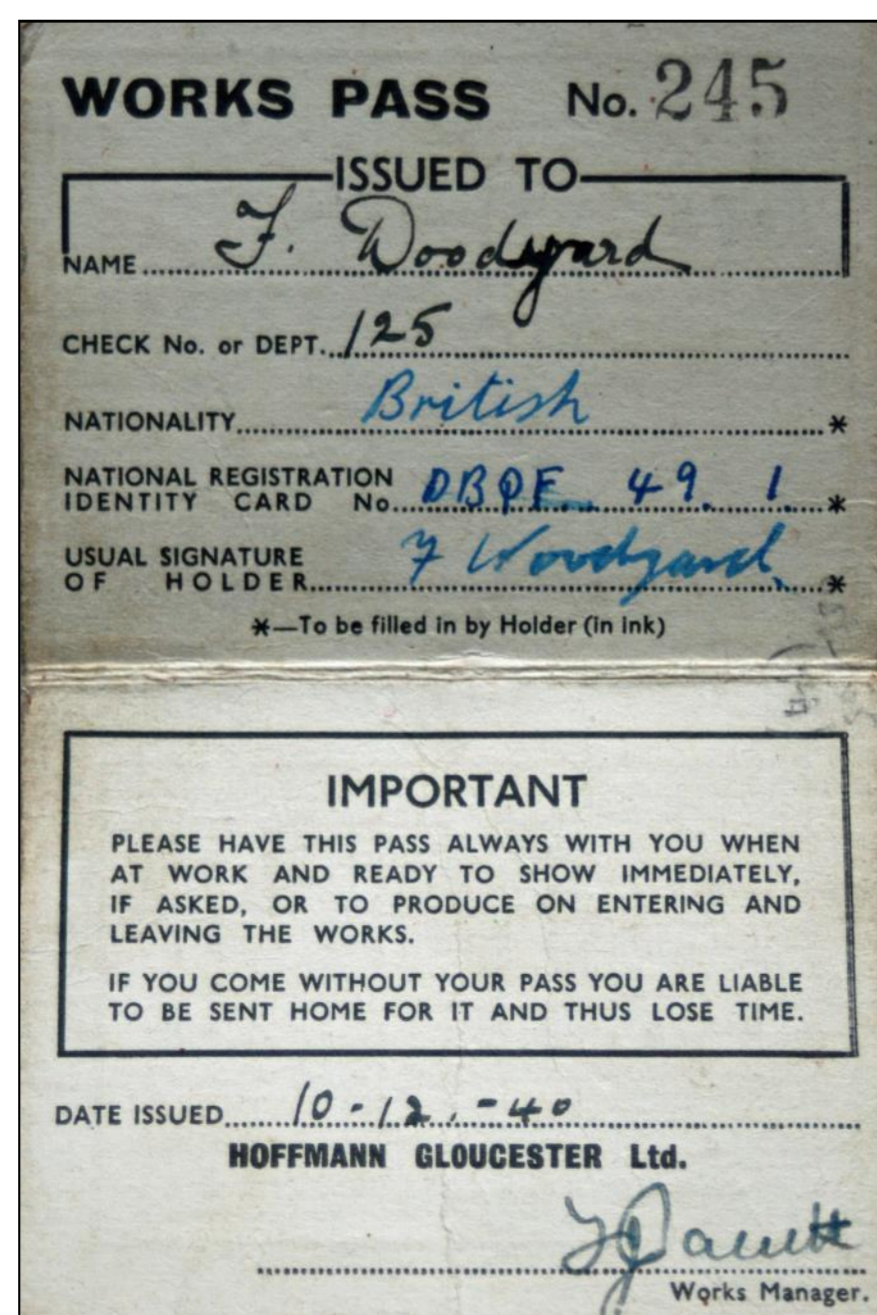 WORKS PASS No. 245
ISSUED TO
NAME F. Woodyard
CHECK No. or DEPT. 125
NATIONALITY British *
NATIONAL REGISTRATION
IDENTITY CARD No. DBPE 49. 1. *
USUAL SIGNATURE
OF HOLDER F Woodyard *
*—To be filled in by Holder (in ink)
IMPORTANT
PLEASE HAVE THIS PASS ALWAYS WITH YOU WHEN
AT WORK AND READY TO SHOW IMMEDIATELY,
IF ASKED, OR TO PRODUCE ON ENTERING AND
LEAVING THE WORKS.
IF YOU COME WITHOUT YOUR PASS YOU ARE LIABLE
TO BE SENT HOME FOR IT AND THUS LOSE TIME.
DATE ISSUED 10-12.-40
HOFFMANN GLOUCESTER Ltd.
Works Manager.